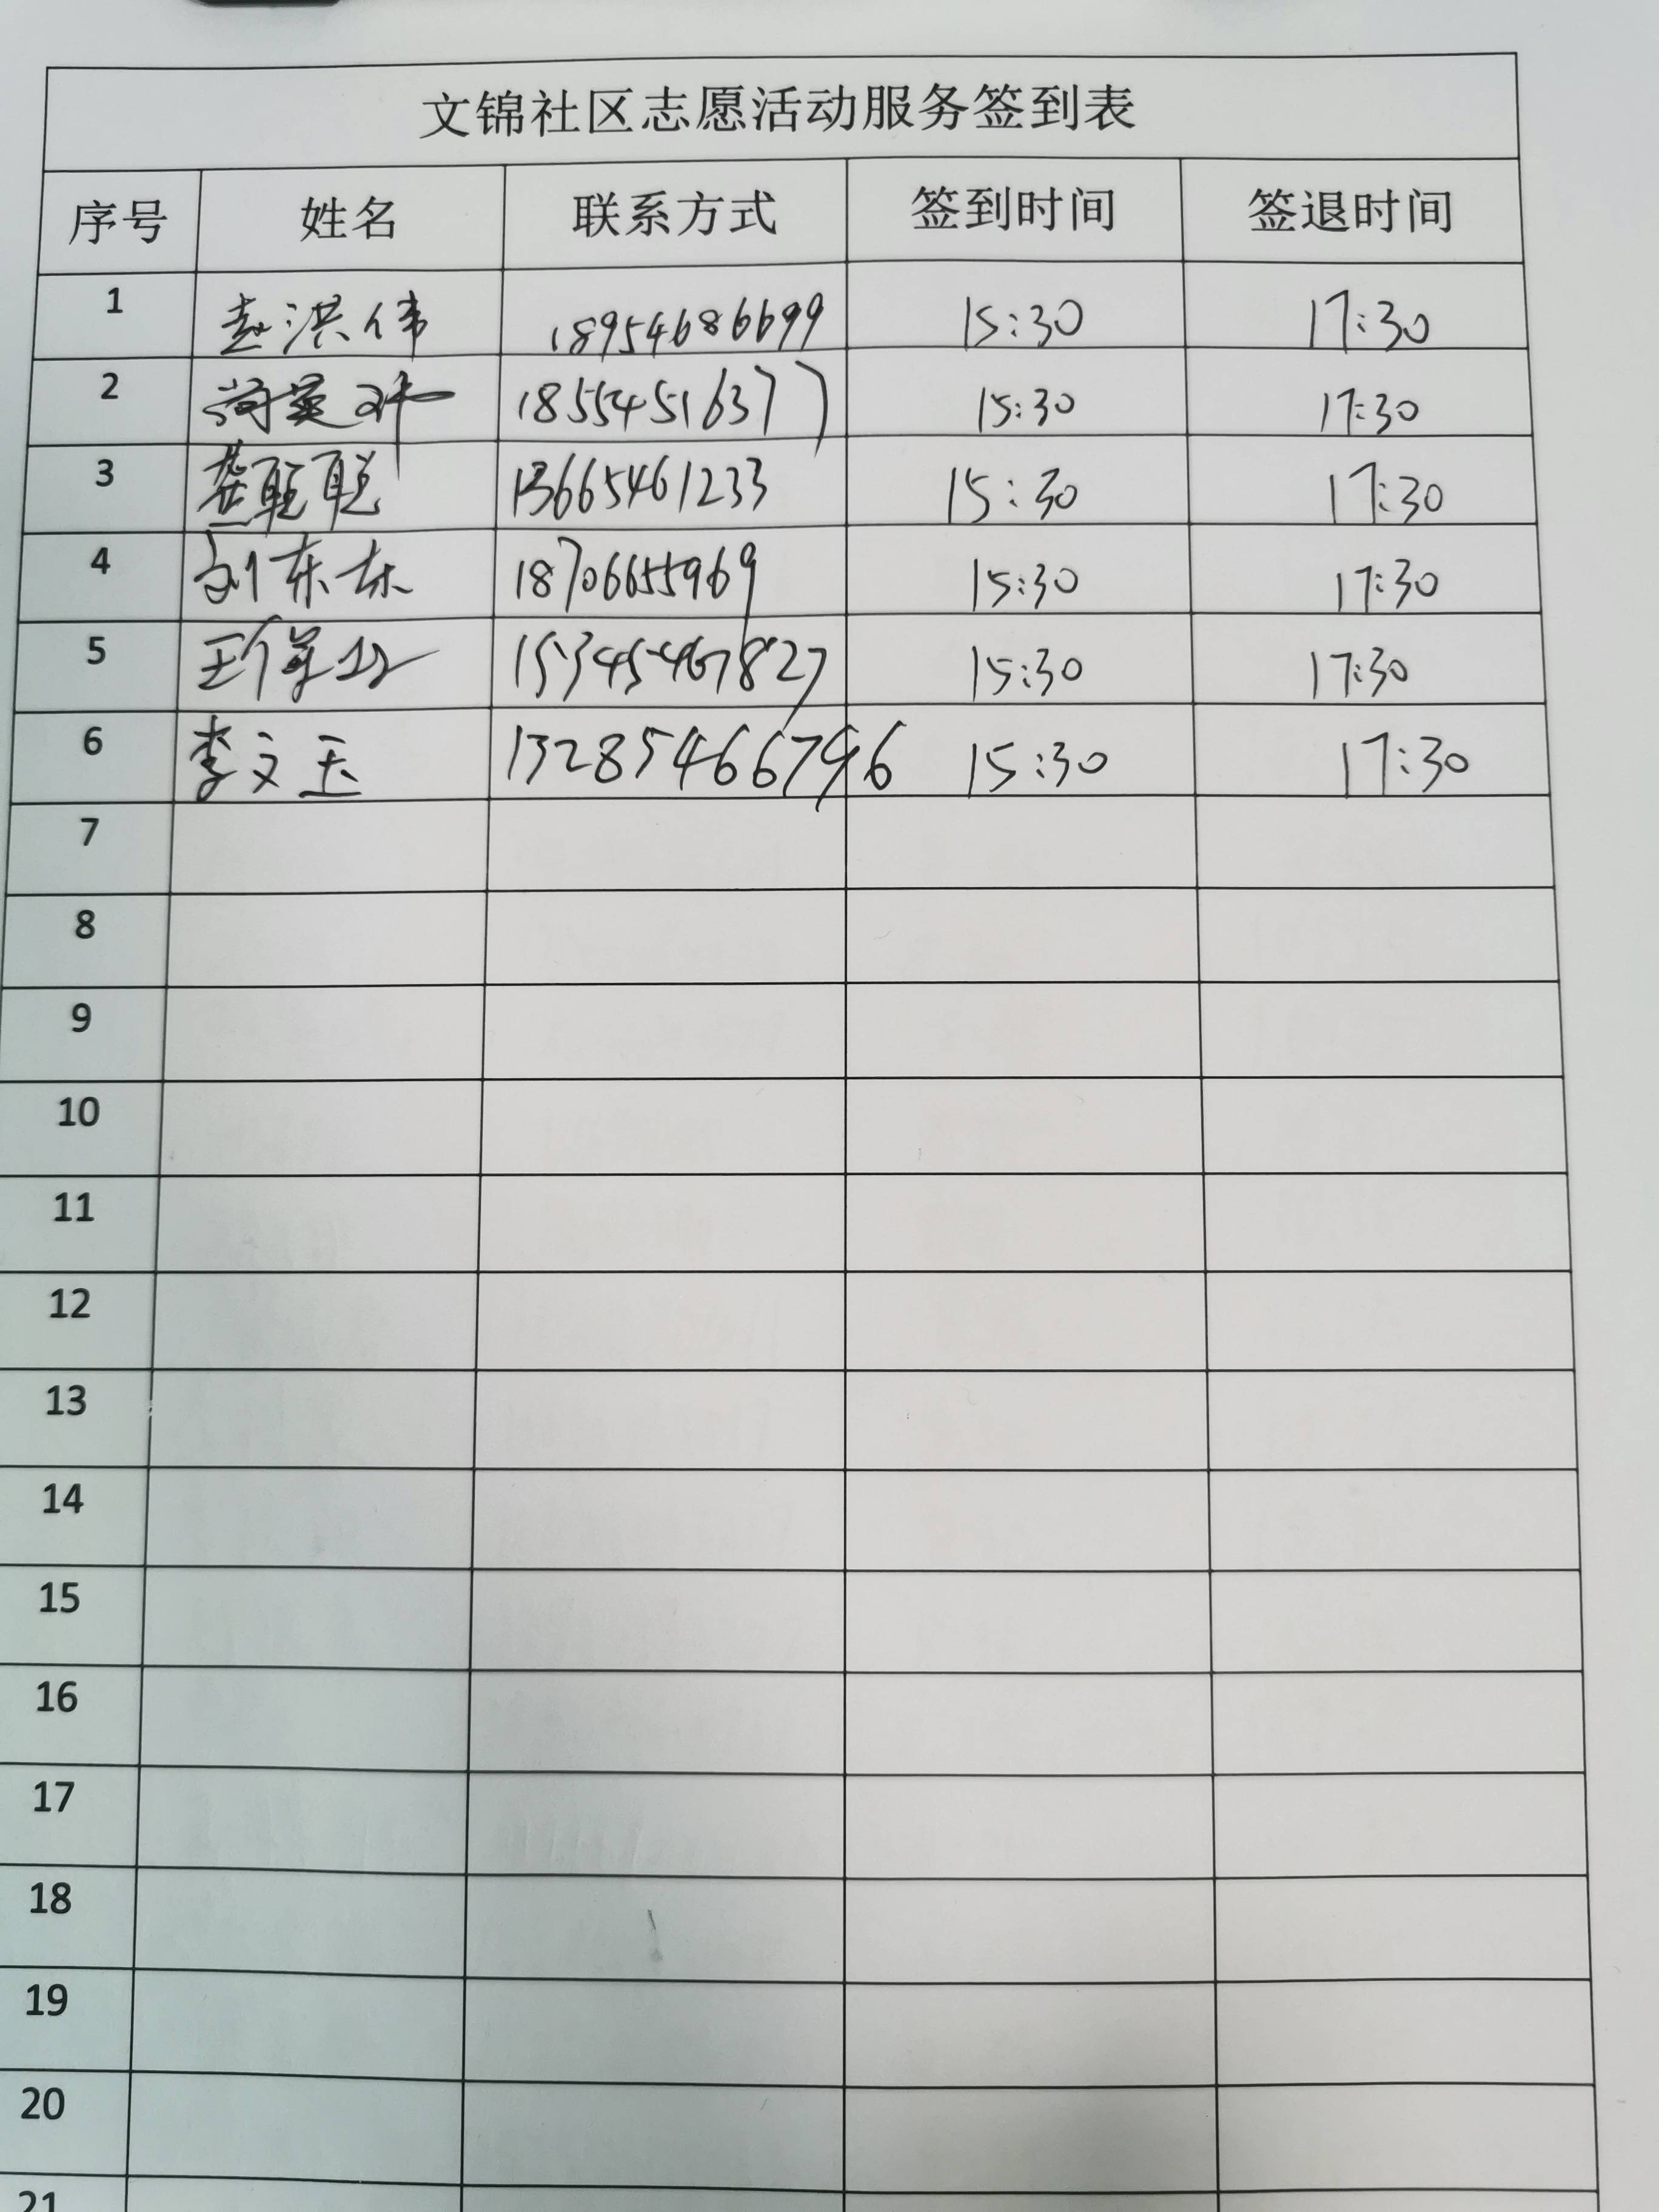 文锦社区志愿活动服务签到表
序号 姓名 联系方式 签到时间 签退时间
1 赵洪伟 18954686699 15:30 17:30
2 18554516377 15:30 17:30
3 龚聪聪 13665461233 15:30 17:30
4 刘东东 18706655969 15:30 17:30
5 15345467827 15:30 17:30
6 李文玉 13285466796 15:30 17:30
7
8
9
10
11
12
13
14
15
16
17
18
19
20
21